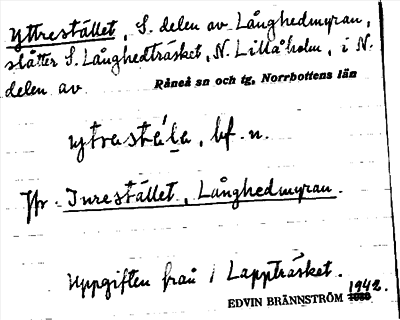 Yttrestället, S. delen av Långhedmyran,
slåtter S. Långhedträsket, N. Lillåholm, i N.
delen av Råneå sn och tg, Norrbottens län
ytrastä́la, bf. n.
Jfr. Inrestället, Långhedmyran.
Uppgiften från Lappträsket.
EDVIN BRÄNNSTRÖM 1942.